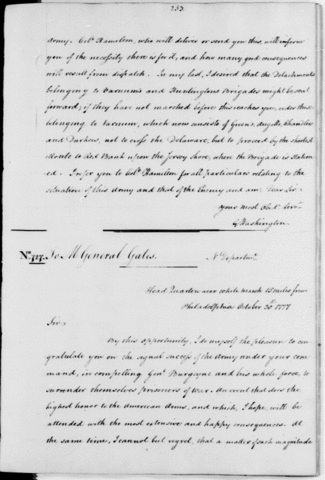 253.
Army. Colo. Hamilton, who will deliver or send you this, will inform
you of the necessity there is for it, and how many good consequences
will result from dispatch. In my last, I desired that the Detachments
belonging to Varnums and Huntingtons Brigades might be sent
forward; if they have not marched before this reaches you, order those
belonging to Varnum, which now consists of Green's, Angells, Chandlers
and Durkees, not to cross the Delaware, but to proceed by the shortest
Route to Red Bank upon the Jersey shore, where the Brigade is station-
ed. I refer you to Colo. Hamilton for all particulars relating to the
situation of this Army and that of the Enemy and am Dear Sir
Your most Obt. Servt.
G Washington.
No. 127. To M General Gates. No. Departmt.
Head Quarters near White Marsh 15 miles from
Philadelphia October 30th. 1777
Sir
By this opportunity, I do myself the pleasure to con-
gratulate you on the signal success of the Army under your com-
mand, in compelling Genl. Burgoyne and his whole force, to
surrender themselves prisoners of War. An event that does the
highest honor to the American Arms, and which, I hope, will be
attended with the most extensive and happy consequences. At
the same time, I cannot but regret, that a matter of such magnitude